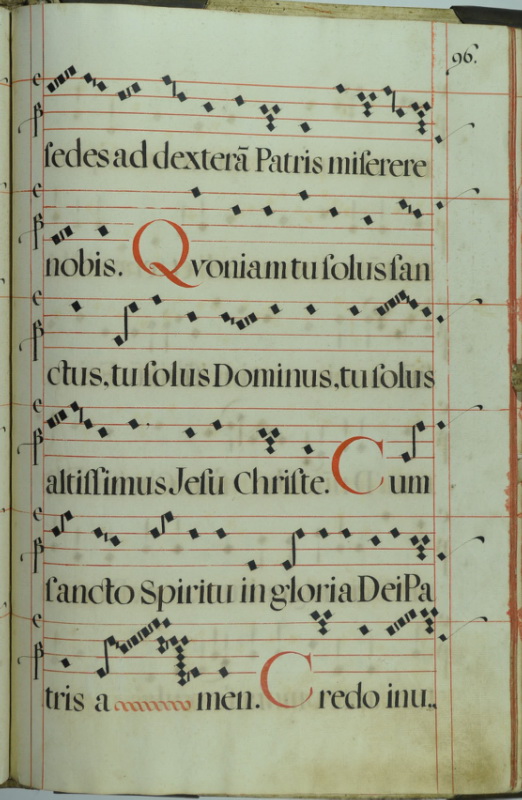 96.
ſedes ad dexterā Patris miſerere
nobis. Qvoniam tu ſolus ſan
ctus, tu ſolus Dominus, tu ſolus
altiſſimus Jeſu Chriſte. Cum
ſancto Spiritu in gloria Dei Pa
tris a men. Credo in u„